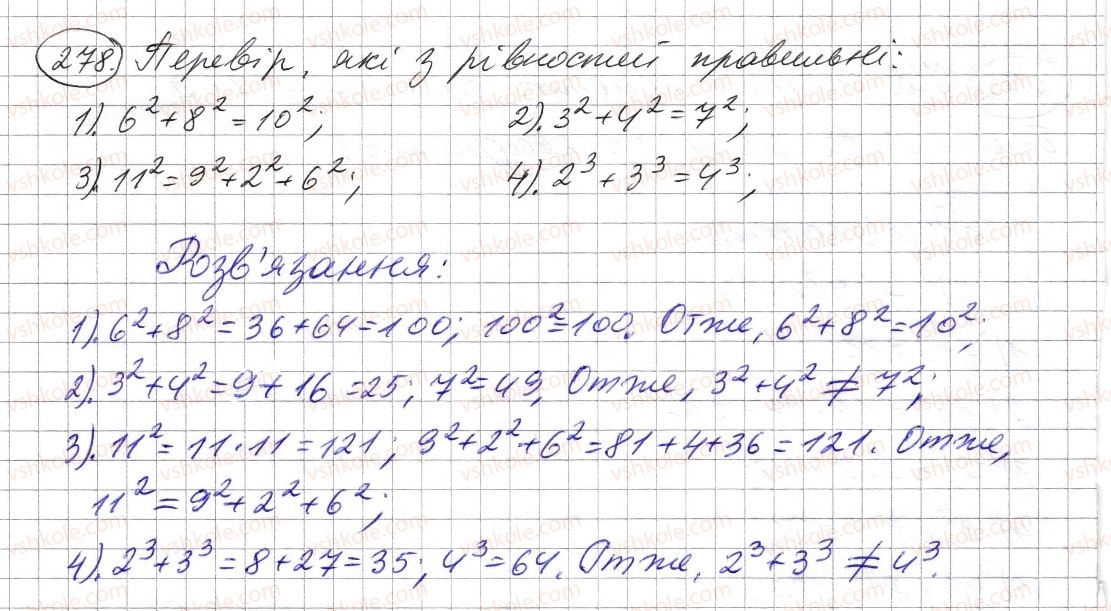 278 Перевір, які з рівностей правильні:
1). 6² + 8² = 10²; 2). 3² + 4² = 7²;
3). 11² = 9² + 2² + 6²; 4). 2³ + 3³ = 4³;
Розв'язання:
1). 6² + 8² = 36 + 64 = 100; 100² = 100. Отже, 6² + 8² = 10²;
2). 3² + 4² = 9 + 16 = 25; 7² = 49, Отже, 3² + 4² ≠ 7²;
3). 11² = 11 · 11 = 121; 9² + 2² + 6² = 81 + 4 + 36 = 121. Отже,
11² = 9² + 2² + 6²;
4). 2³ + 3³ = 8 + 27 = 35; 4³ = 64. Отже, 2³ + 3³ ≠ 4³.
vshkole.com